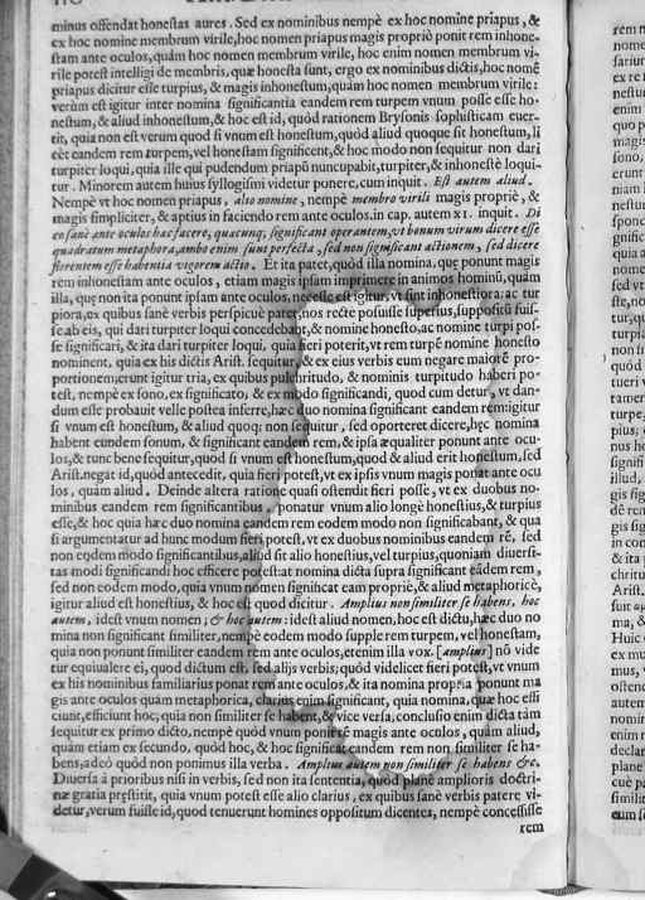 minus offendat honestas aures. Sed ex nominibus nempè ex hoc nomine priapus, &
ex hoc nomine membrum virile, hoc nomen priapus magis propriè ponit rem inhone-
stam ante oculos, quàm hoc nomen membrum virile, hoc enim nomen membrum vi-
rile potest intelligi de membris, quæ honesta sunt, ergo ex nominibus dictis, hoc nomē
priapus dicitur esse turpius, & magis inhonestum, quàm hoc nomen membrum virile:
verùm est igitur inter nomina significantia eandem rem turpem vnum posse esse ho-
nestum, & aliud inhonestum, & hoc est id, quòd rationem Brysonis sophisticam euer-
tit, quia non est verum quod si vnum est honestum, quòd aliud quoque sit honestum, li
cèt eandem rem turpem, vel honestam significent, & hoc modo non sequitur non dari
turpiter loqui, quia ille qui pudendum priapū nuncupabit, turpiter, & inhonestè loqui-
tur. Minorem autem huius syllogismi videtur ponere, cum inquit. Est autem aliud.
Nempè vt hoc nomen priapus, alio nomine, nempè membro virili magis propriè, &
magis simpliciter, & aptius in faciendo rem ante oculos. in cap. autem XI. inquit. Di
co sanè ante oculos hac facere, quacunq; significant operantem, vt bonum virum dicere esse
quadratum metaphora, ambo enim sunt perfecta, sed non significant actionem, sed dicere
florentem esse habentia vigorem actio. Et ita patet, quòd illa nomina, quę ponunt magis
rem inhonestam ante oculos, etiam magis ipsam imprimere in animos hominū, quàm
illa, quę non ita ponunt ipsam ante oculos, necesse est igitur, vt sint inhonestiora: ac tur
piora, ex quibus sanè verbis perspicuè patet, nos rectè posuisse superius, suppositū fuis-
se ab eis, qui dari turpiter loqui concedebant, & nomine honesto, ac nomine turpi pos-
se significari, & ita dari turpiter loqui, quia fieri poterit, vt rem turpē nomine honesto
nominent, quia ex his dictis Arist. sequitur, & ex eius verbis eum negare maiorē pro-
portionem; erunt igitur tria, ex quibus pulchritudo, & nominis turpitudo haberi po-
test, nempè ex sono, ex significato, & ex modo significandi, quod cum detur, vt dan-
dum esse probauit velle postea inferre, hæc duo nomina significant eandem rem: igitur
si vnum est honestum, & aliud quoq: non sequitur, sed oporteret dicere, hęc nomina
habent eundem sonum, & significant eandem rem, & ipsa æqualiter ponunt ante ocu-
los, & tunc bene sequitur, quòd si vnum est honestum, quod & aliud erit honestum, sed
Arist. negat id, quòd antecedit, quia fieri potest, vt ex ipsis vnum magis ponat ante ocu
los, quàm aliud. Deinde altera ratione quasi ostendit fieri posse, vt ex duobus no-
minibus eandem rem significantibus, ponatur vnum alio longè honestius, & turpius
esse, & hoc quia hæc duo nomina eandem rem eodem modo non significabant, & qua
si argumentatur ad hunc modum fieri potest, vt ex duobus nominibus eandem rē, sed
non eodem modo significantibus, aliud sit alio honestius, vel turpius, quoniam diuersi-
tas modi significandi hoc efficere potest: at nomina dicta supra significant eādem rem,
sed non eodem modo, quia vnum nomen significat eam propriè, & aliud metaphoricè,
igitur aliud est honestius, & hoc est quod dicitur. Amplius non similiter se habens, hoc
autem, idest vnum nomen; & hoc autem: idest aliud nomen, hoc est dictu, hæc duo no
mina non significant similiter, nempè eodem modo supple rem turpem, vel honestam,
quia non ponunt similiter eandem rem ante oculos, etenim illa vox. [amplius] nō vide
tur equiualere ei, quod dictum est, sed alijs verbis; quòd videlicet fieri potest, vt vnum
ex his nominibus familiarius ponat rem ante oculos, & ita nomina propria ponunt ma
gis ante oculos quàm metaphorica, clarius enim significant, quia nomina, quæ hoc effi
ciunt, efficiunt hoc, quia non similiter se habent, & vice versa, conclusio enim dicta tàm
sequitur ex primo dicto, nempè quòd vnum poniere magis ante oculos, quàm aliud,
quàm etiam ex secundo, quòd hoc, & hoc significāt eandem rem non similiter se ha-
bens, adeò quòd non ponimus illa verba. Amplius autem non similiter se habens &c.
Diuersa à prioribus nisi in verbis, sed non ita sententia, quòd planè amplioris doctri-
næ gratia pręstitit, quia vnum potest esse alio clarius, ex quibus sanè verbis patere vi-
detur, verum fuisse id, quod tenuerunt homines oppositum dicentes, nempè concessisse
rem